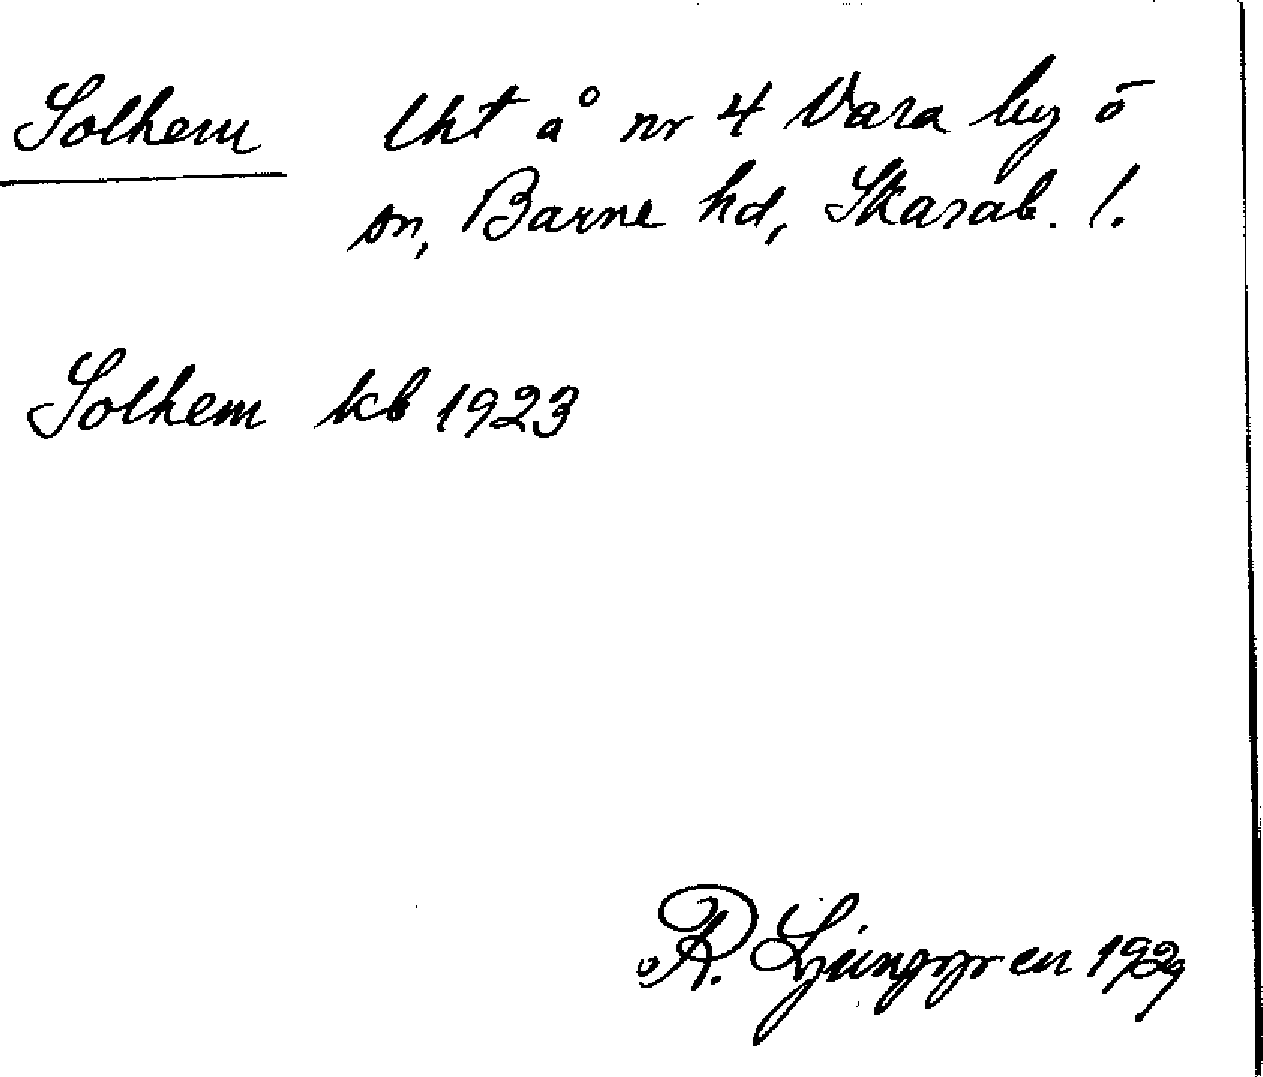 Solhem lht å nr 4 Vara by o
sn, Barne hd, Skarab. l.
Solhem kb 1923
R. Ljunggren 1929